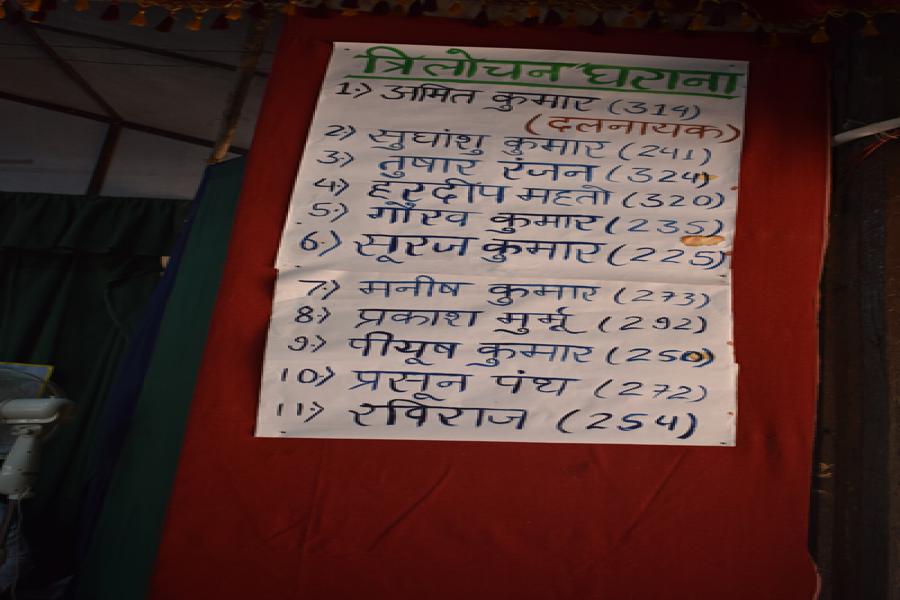 त्रिलोचन घराना
1:) अमित कुमार (314)
(दलनायक)
2:) सुधांशु कुमार (241)
3:) तुषार रंजन (324)
4:) हरदीप महतो (320)
5:) गौरव कुमार (235)
6:) सूरज कुमार (225)
7:) मनीष कुमार (273)
8:) प्रकाश मुर्मू (292)
9:) पीयूष कुमार (250)
10:) प्रसून पंथ (272)
11:) रविराज (254)